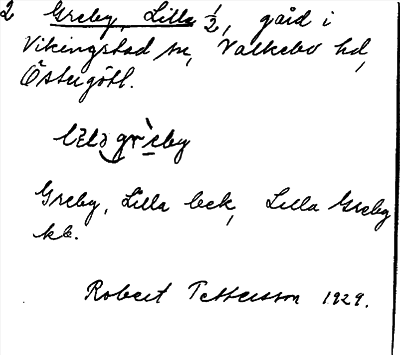 2 Greby, Lilla 1/2, gård i
Vikingstad sn, Valkebo hd,
Östergötl.
grèby
Greby, Lilla bek, Lilla Greby
kb.
Robert Pettersson 1929.